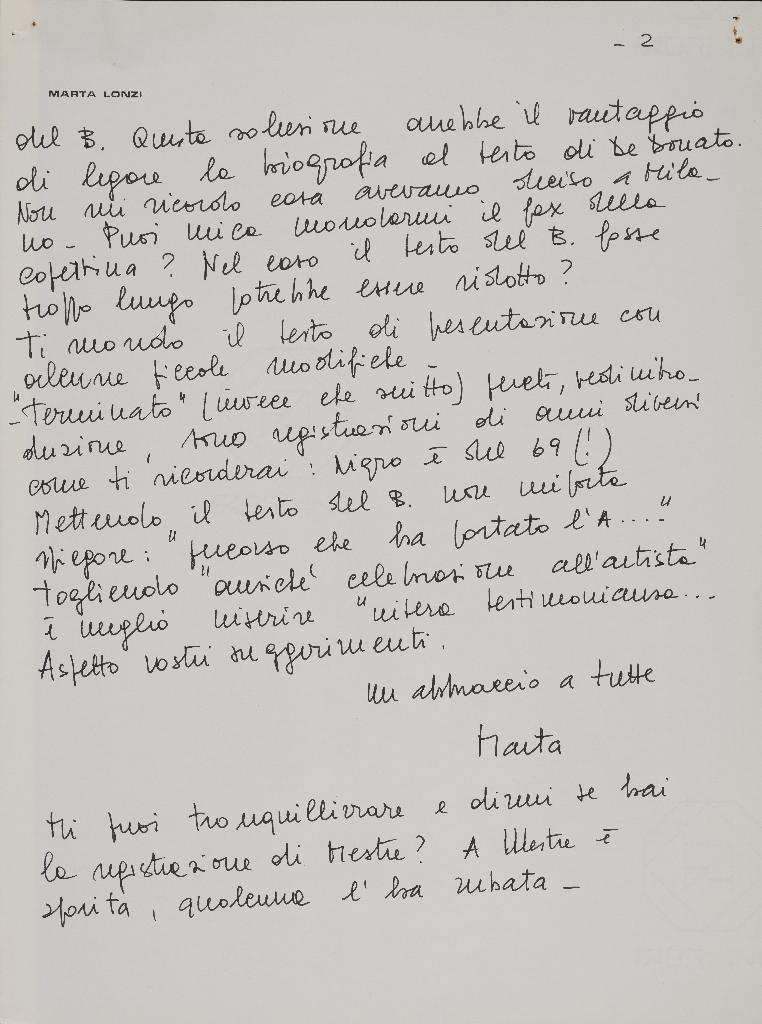 - 2
MARTA LONZI
del B. Questa soluzione avrebbe il vantaggio
di legare la biografia al testo di De Donato.
Non mi ricordo cosa avevamo deciso a Mila-
no - Puoi mica mandarmi il fax della
copertina? Nel caso il testo del B. fosse
troppo lungo potrebbe essere ridotto?
Ti mando il testo di presentazione con
alcune piccole modifiche -
- "Terminato" (invece che scritto) perché, vedi intro-
duzione, sono registrazioni di anni diversi
come ti ricorderai: Nigro è del 69 (!)
Mettendo il testo del B. non importa
spiegare: "percorso che ha portato l'A...."
togliendo "anziché celebrazione all'artista"
è meglio inserire "intera testimonianza...
Aspetto vostri suggerimenti.
Un abbraccio a tutte
Marta
Mi puoi tranquillizzare e dirmi se hai
la registrazione di Mestre? A Mestre è
sparita, qualcuna l'ha rubata -